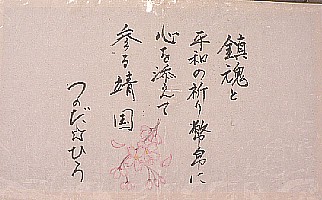 鎮魂と
平和の祈り幣帛に
心を添えて
参る靖国
つのだ☆ひろ